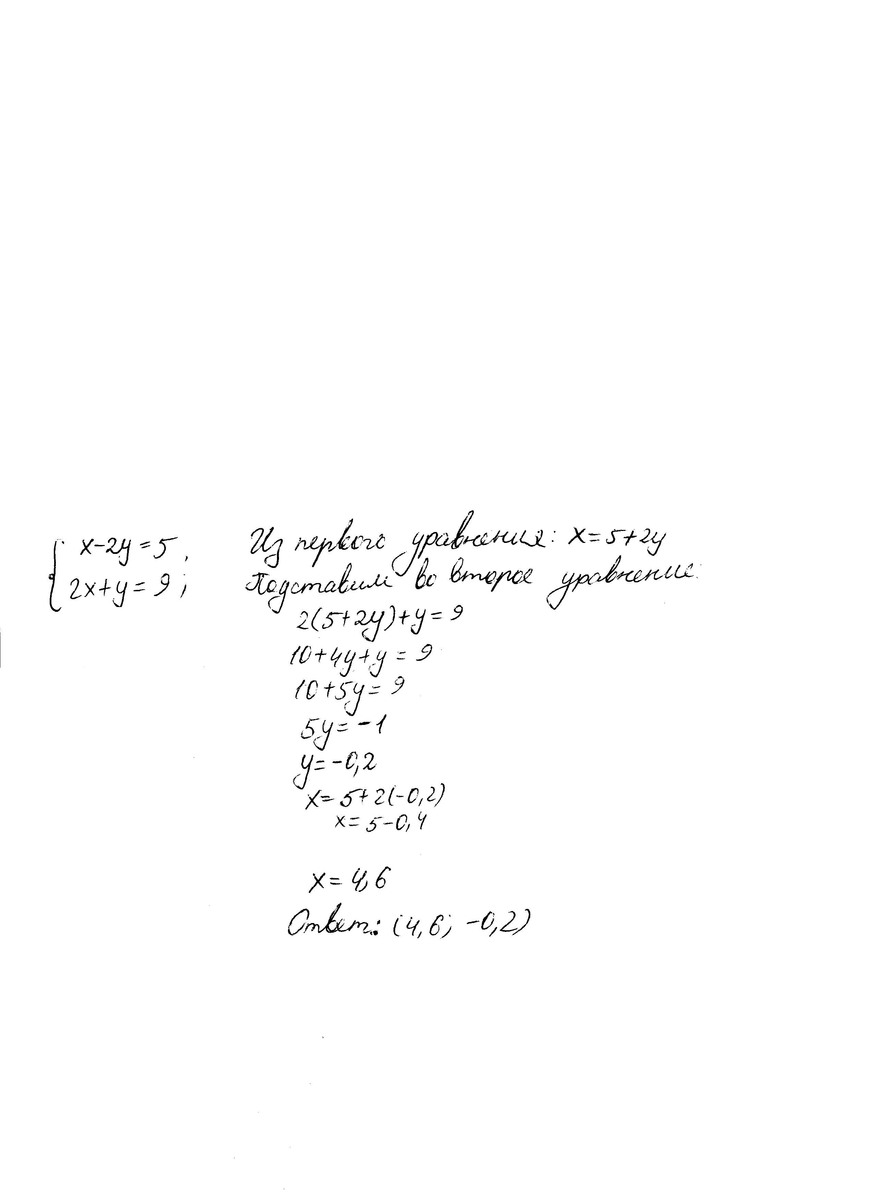 x-2y=5, Из первого уравнения: x=5+2y
2x+y=9; Подставим во второе уравнение:
2(5+2y)+y=9
10+4y+y=9
10+5y=9
5y=-1
y=-0,2
x=5+2(-0,2)
x=5-0,4
x=4,6
Ответ: (4,6; -0,2)